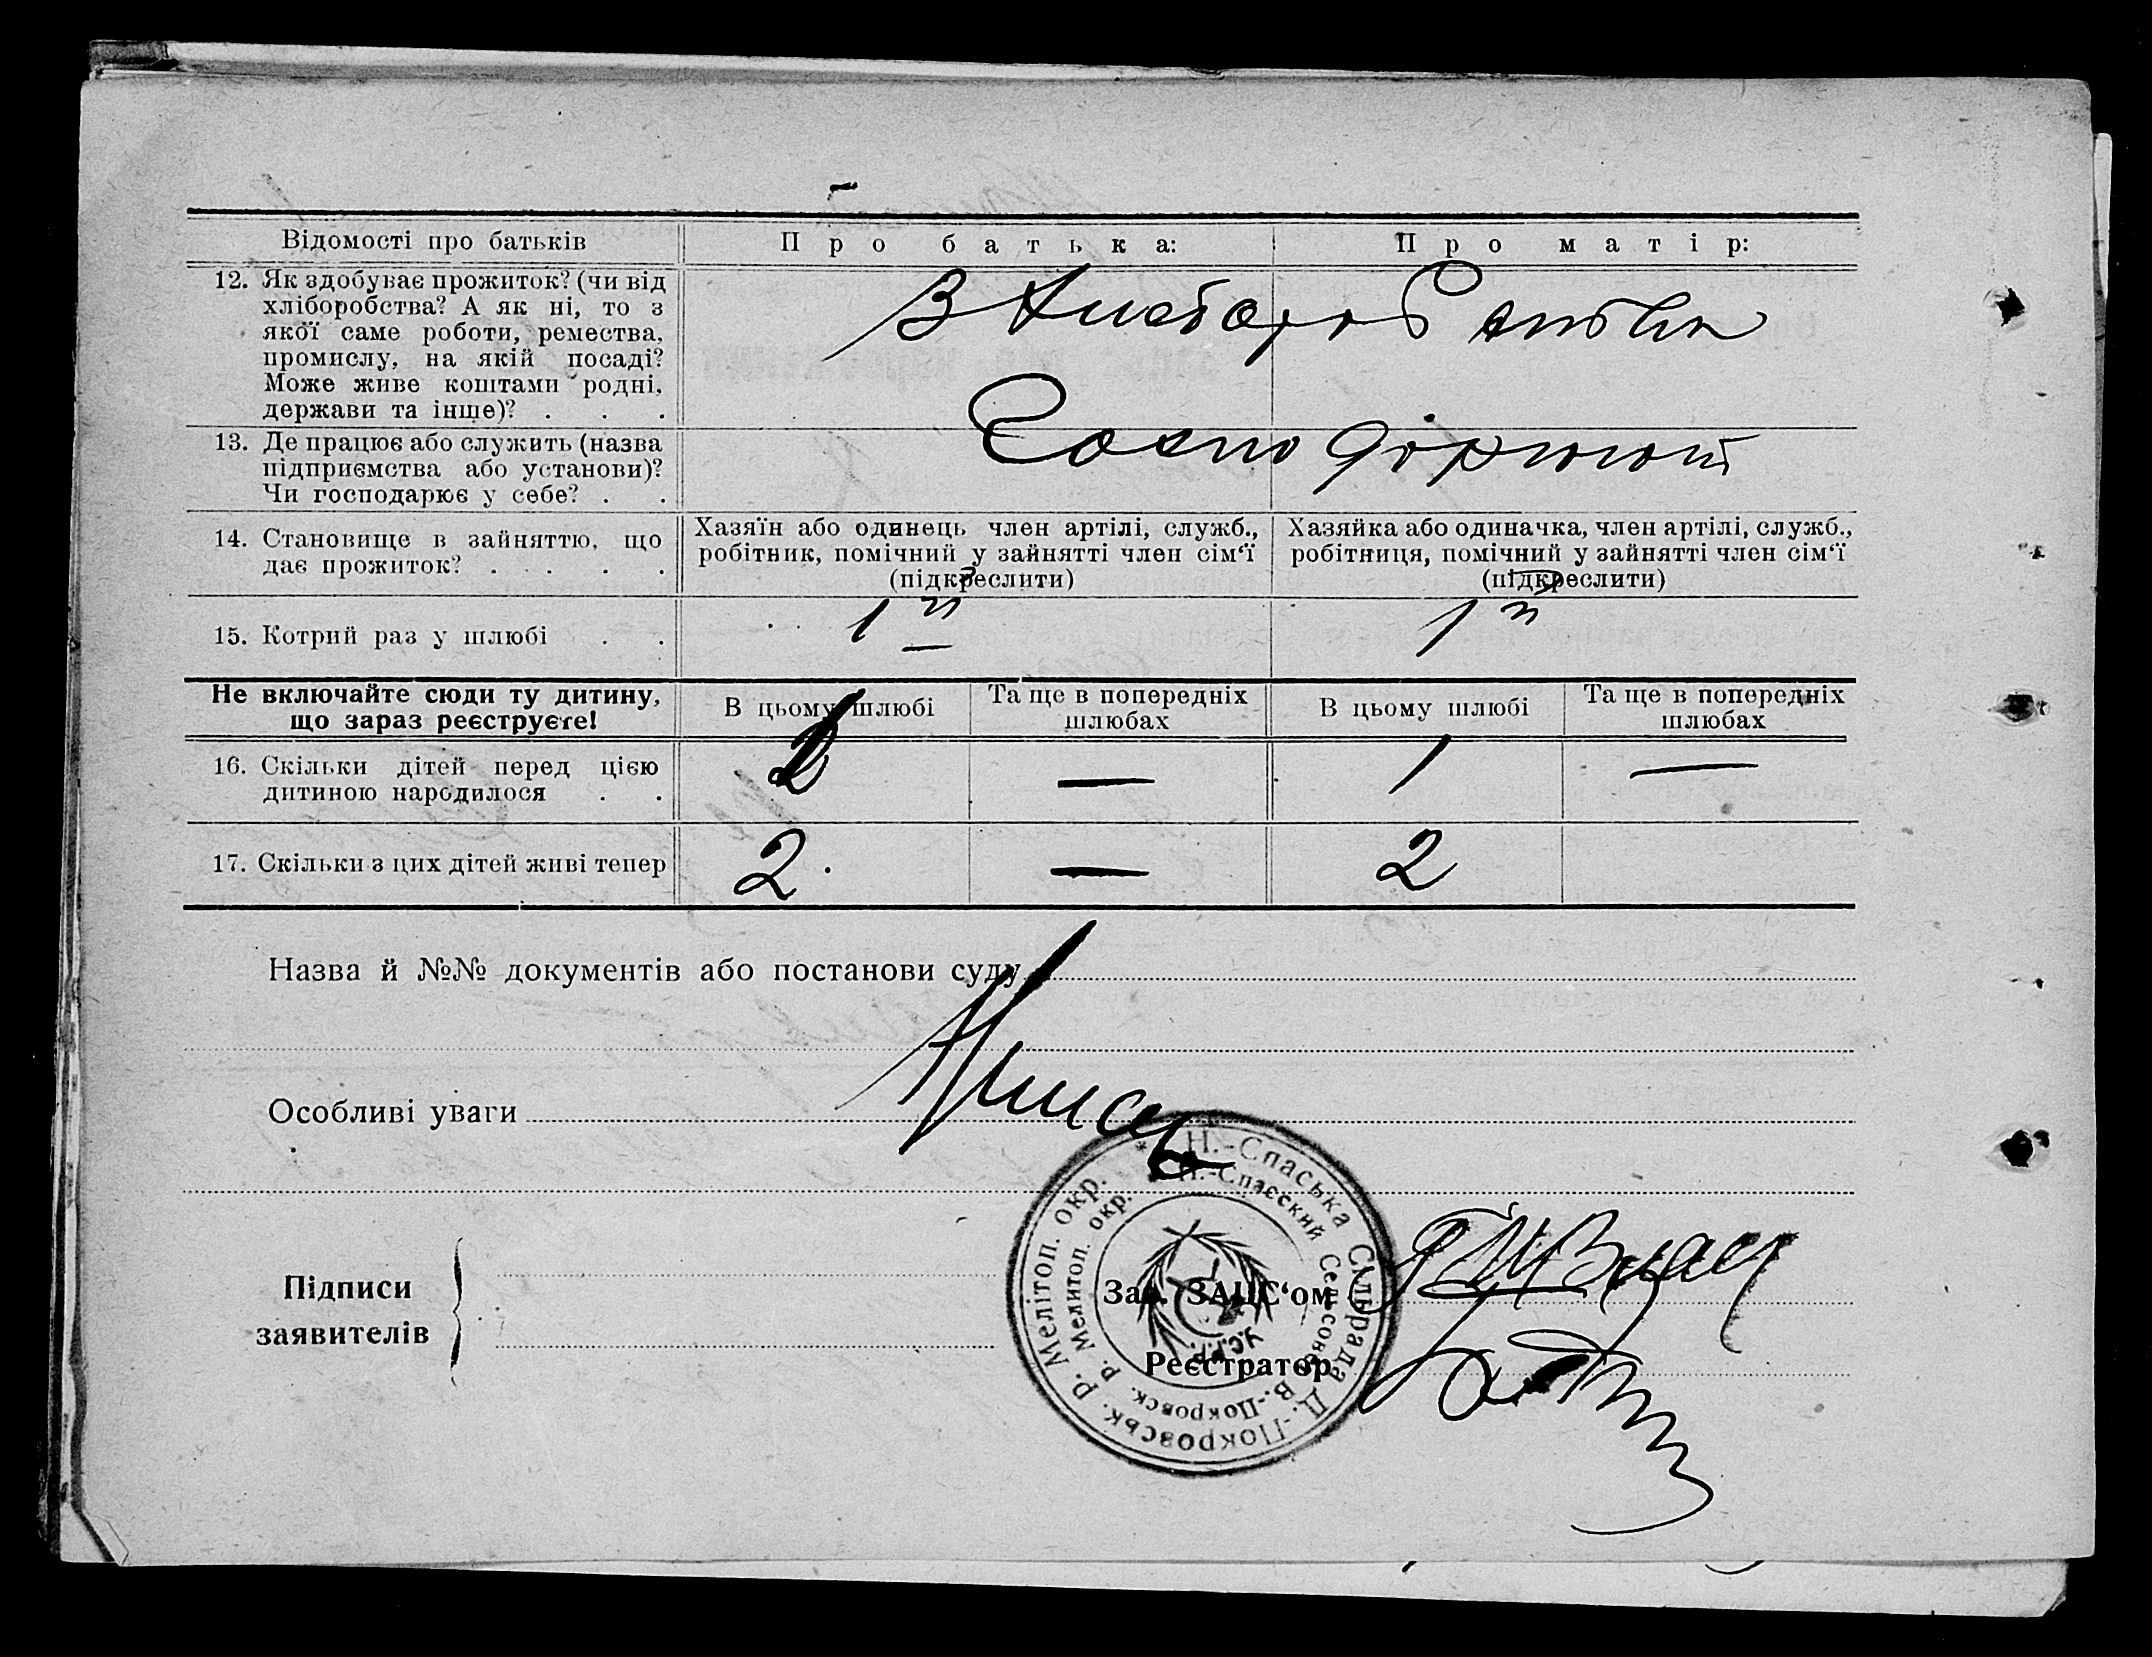 Відомості про батьків
Про батька:
Про матір:
12. Як здобуває прожиток? (чи від
хліборобства? А як ні, то з
якої саме роботи, ремества,
промислу, на якій посаді?
Може живе коштами родні,
держави та інше)? . . .
13. Де працює або служить (назва
підприємства або установи)?
Чи господарює у себе? . .
14. Становище в зайняттю, що
дає прожиток? . . . .
Хазяїн або одинець член артілі, служб.,
робітник, помічний у зайнятті член сім‘ї
(підкреслити)
Хазяйка або одиначка, член артілі, служб.,
робітниця, помічний у зайнятті член сім‘ї
(підкреслити)
15. Котрий раз у шлюбі . .
1й
1й
Не включайте сюди ту дитину,
що зараз реєструєте!
В цьому шлюбі
Та ще в попередніх
шлюбах
В цьому шлюбі
Та ще в попередніх
шлюбах
16. Скільки дітей перед цією
дитиною народилося . .
—
1
—
17. Скільки з цих дітей живі тепер
2.
—
2
Назва й №№ документів або постанови суду
Особливі уваги
Н.-Спаська Сільрада Д.-Покровськ. р. Мелітоп. окр.
Н.-Спасский Сельсовет В.-Покровск. р. Мелитоп. окр.
У.С.Р.Р.
Підписи
заявителів
Зав. ЗАЦС‘ом
Реєстратор